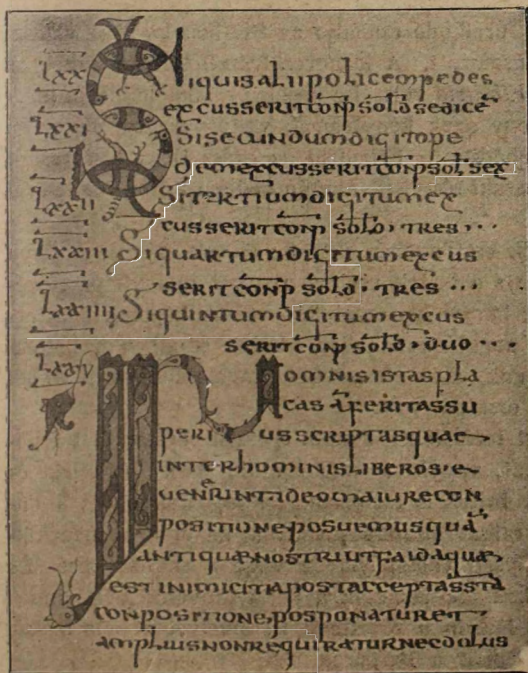 Lxx Siquis alii police(m) pedes
excusserit conp sold sedice
Lxxi Si secundum digito pe
dem excusserit conp sol sex
Lxxii Si tertium digitum ex
cusserit conp sold · tres · · ·
Lxxiii Si quartum digitum excus
serit conp sold · tres · · ·
Lxxiiii Si quintum digitum excus
serit conp sold · duo · · ·
Lxxv In omnis istas pla
cas
peri us scriptas quae
inter hominis liberos e
venerint ideo maiure con
positione posuemus qua
antiquae nostri ut faida quae
est inimicitia post acceptas sta
conpositione, posponatur et
amplius non requiratur nec dolus